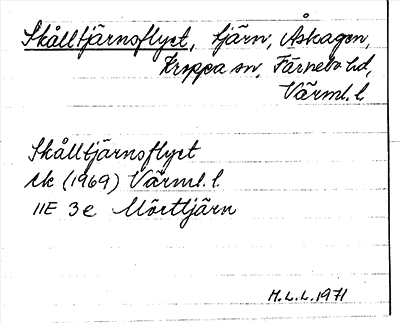 Skålltjärnsflyet, tjärn, Åskagen,
Kroppa sn, Färnebo hd,
Värml. l.
Skålltjärnsflyet
Ek (1969) Värml. l.
11E 3e Mörttjärn
H.L.L. 1971